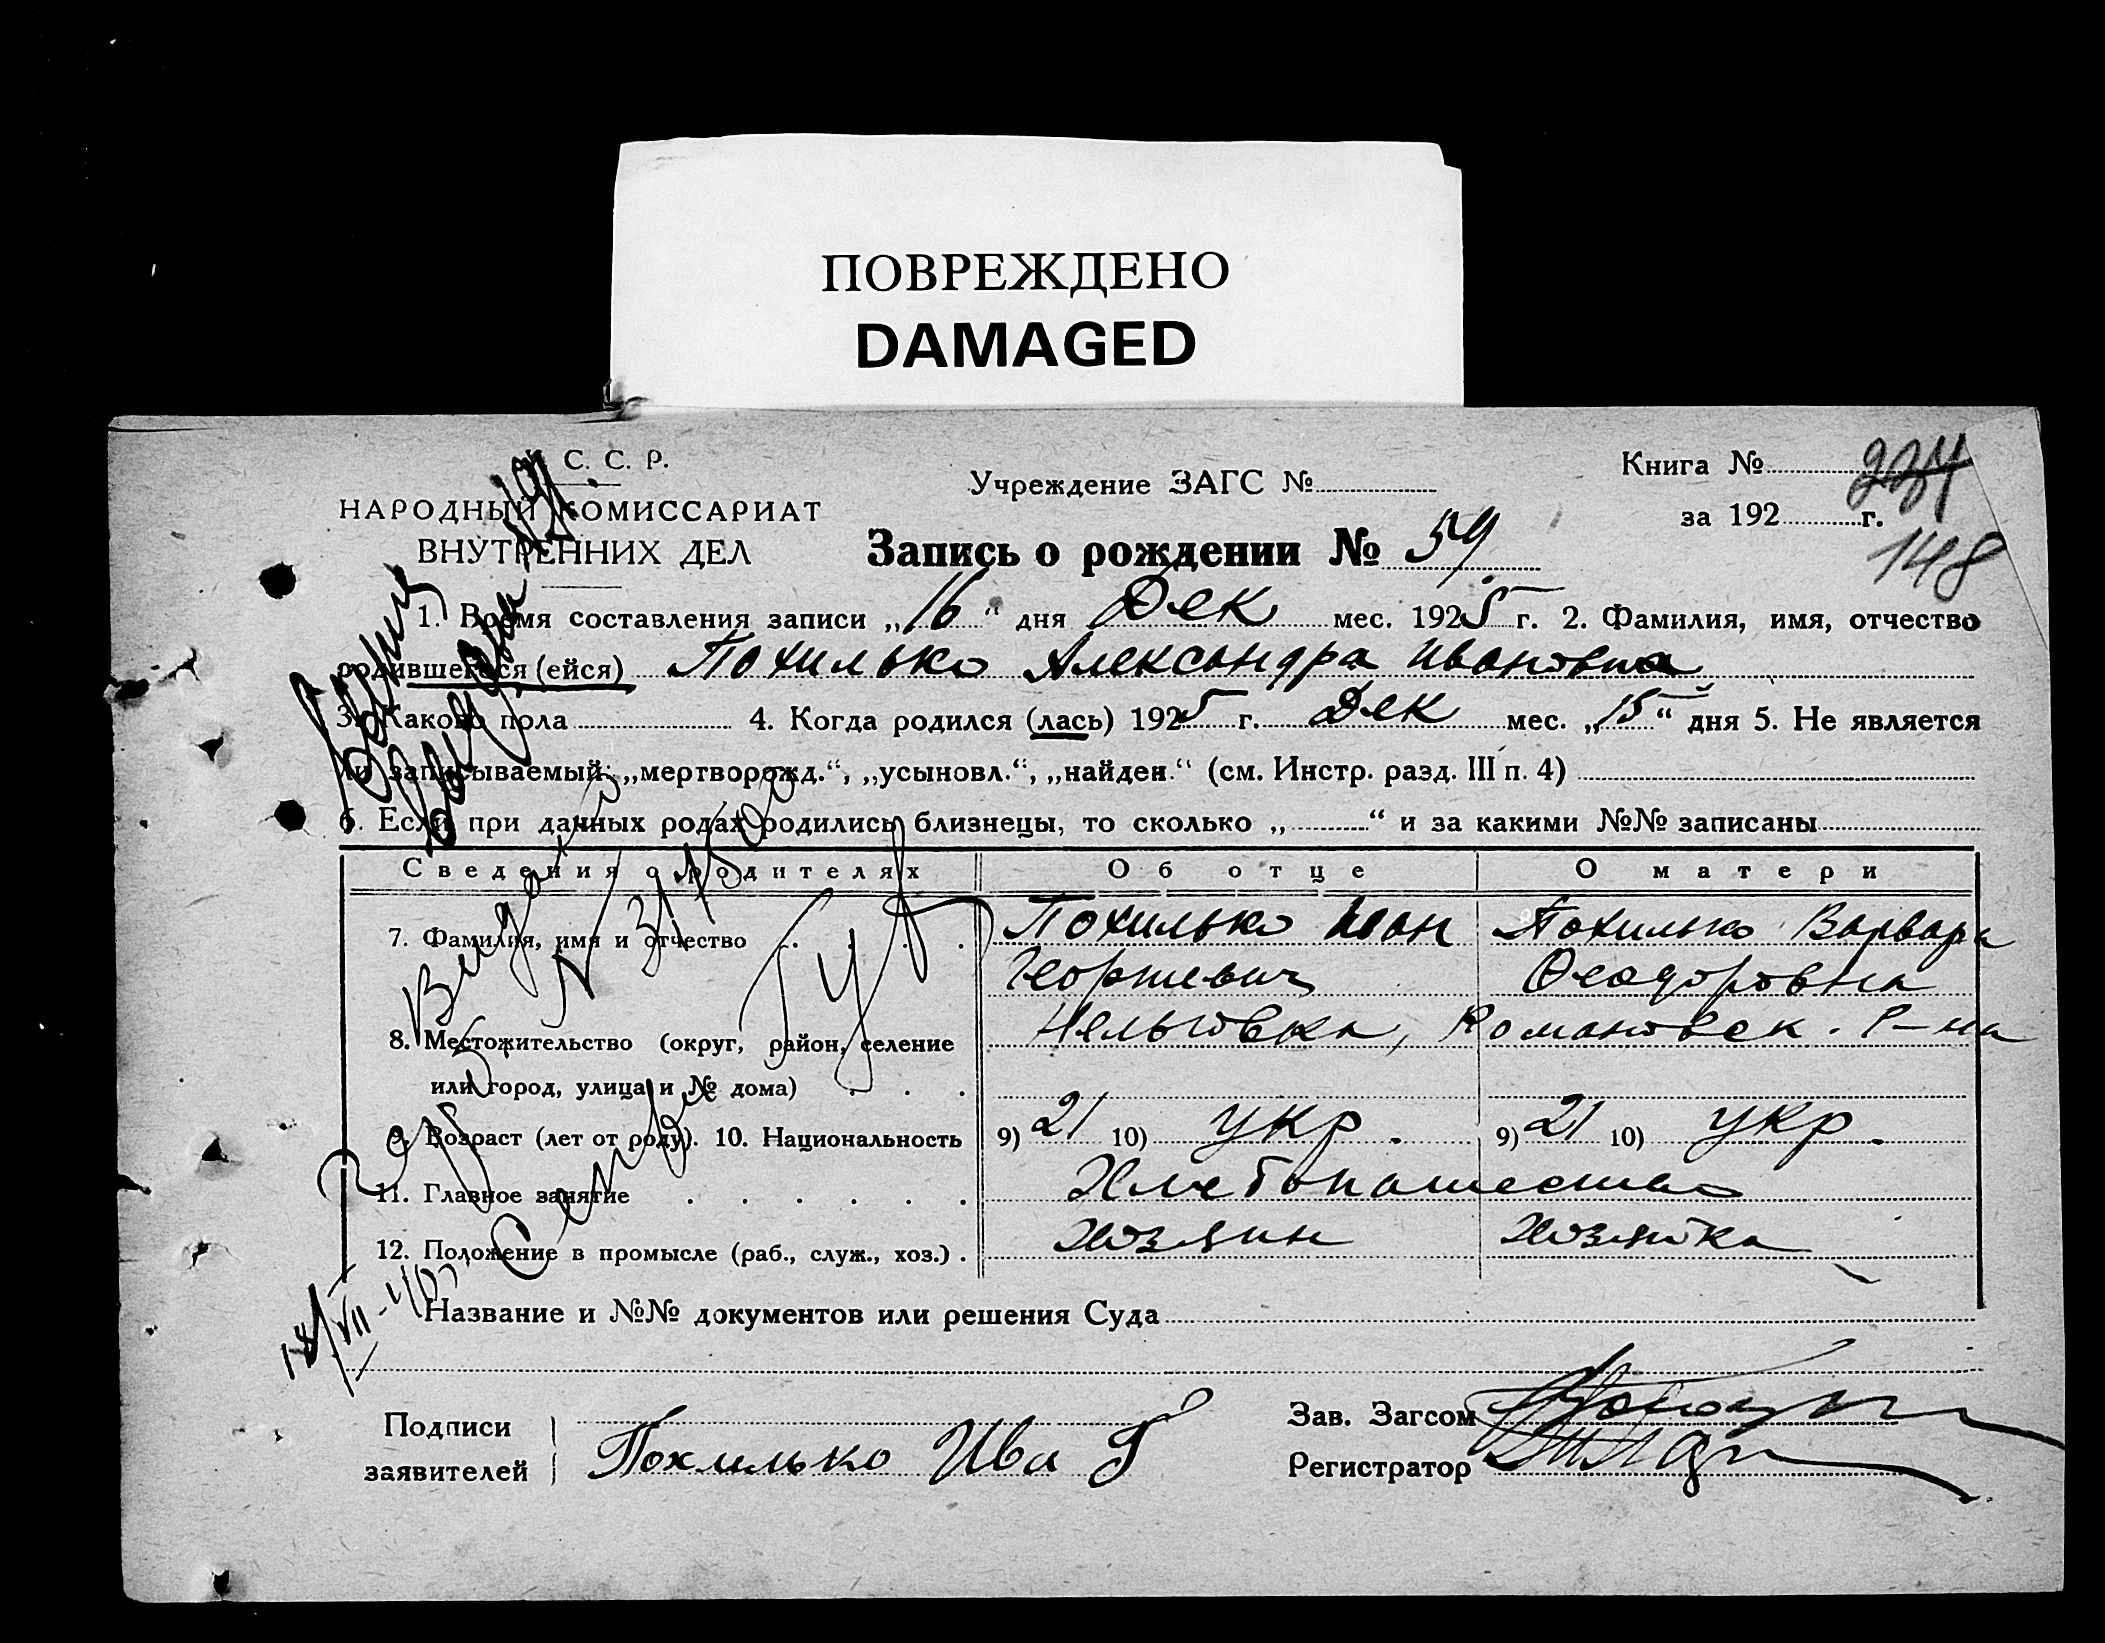 ПОВРЕЖДЕНО
DAMAGED
С. С. Р.
НАРОДНЫЙ КОМИССАРИАТ
ВНУТРЕННИХ ДЕЛ
Учреждение ЗАГС №
Книга № 224
за 192 г.
148
Запись о рождении № 59
1. Время составления записи „16“ дня Дек мес. 1925 г. 2. Фамилия, имя, отчество
родившегося (ейся) Похилько Александра Ивановна
3. Каково пола 4. Когда родился (лась) 1925 г. Дек мес. „15“ дня 5. Не является
ли записываемый: „мертворожд.“, „усыновл.“, „найден.“ (см. Инстр. разд. III п. 4)
6. Если при данных родах родились близнецы, то сколько „ “ и за какими №№ записаны
Сведения о родителях Об отце О матери
7. Фамилия, имя и отчество Похилько Иван Похилько Варвара
Георгиевич Феодоровна
8. Местожительство (округ, район, селение Романовск. Р-на
или город, улица и № дома)
9. Возраст (лет от роду). 10. Национальность 9) 21 10) укр. 9) 21 10) укр.
11. Главное занятие Хлебопашество
12. Положение в промысле (раб., служ., хоз.) Хозяин Хозяйка
Название и №№ документов или решения Суда
Подписи
заявителей
Похилько Ива Г
Зав. Загсом
Регистратор